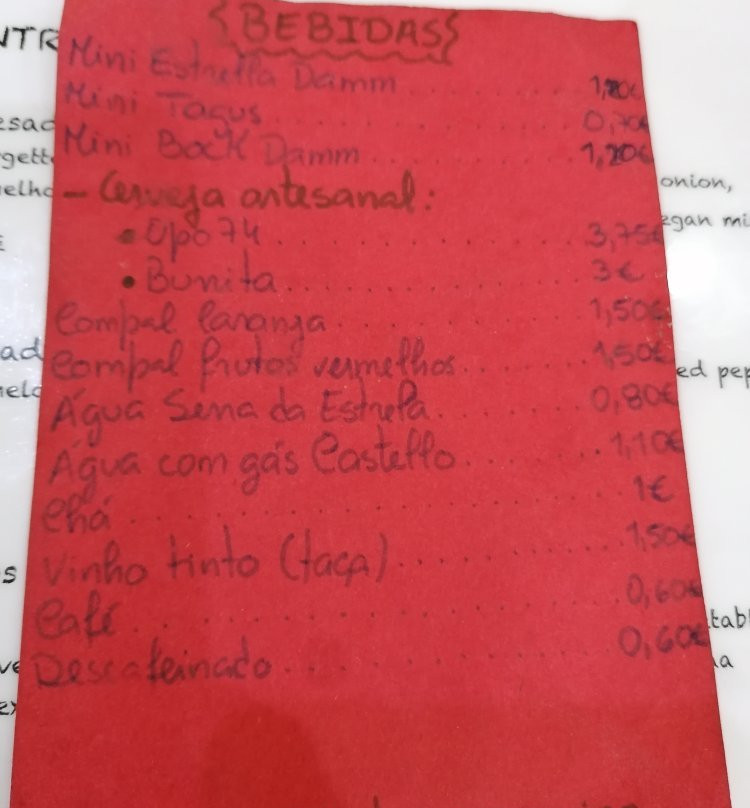 {BEBIDAS}
Mini Estrella Damm............ 1,20€
Mini Tagus............ 0,70€
Mini Bock Damm............ 1,20€
- Cerveja artesanal:
• Opo 74............ 3,75€
• Bunita............ 3€
Compal laranja............ 1,50€
Compal frutos vermelhos........ 1,50€
Água Serra da Estrela.......... 0,80€
Água com gás Castello........ 1,10€
Chá............ 1€
Vinho tinto (taça)............ 1,50€
Café............ 0,60€
Descafeinado............ 0,60€
onion,